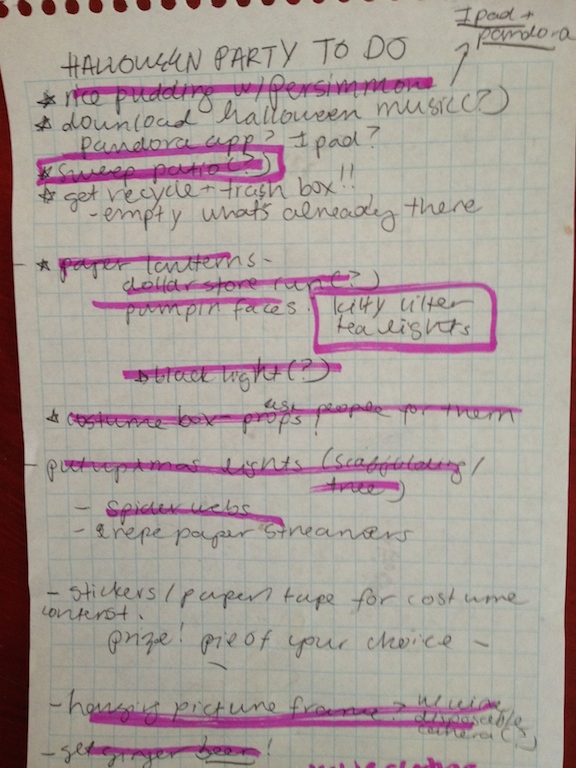 Ipad +
pandora
HALLOWEEN PARTY TO DO
* rice pudding w/persimmon
* download halloween music(?)
pandora app? Ipad?
* sweep patio(?)
* get recycle + trash box!!
- empty whats already there
* paper lanterns -
dollar store run(?)
pumpin faces.
kitty litter
tea lights
black light(?)
ask people for them
* costume box - props!
put up xmas lights (scaffolding/
tree)
- spider webs
- crepe paper streamers
- stickers/paper/tape for costume
contest.
prize! pie of your choice -
- hanging picture frame > w/ wine,
disposable
camera(?)
- get ginger beer!